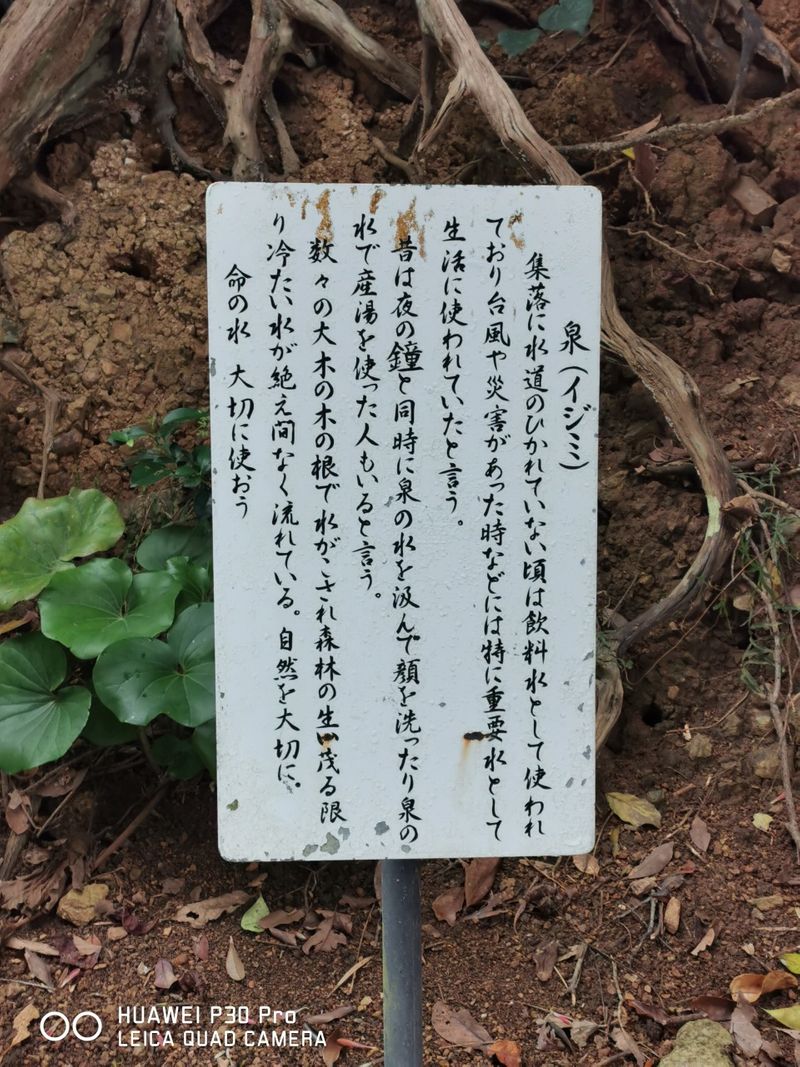 泉(イジミ)
集落に水道のひかれていない頃は飲料水として使われ
ており台風や災害があった時などには特に重要水として
生活に使われていたと言う。
昔は夜の鐘と同時に泉の水を汲んで顔を洗ったり泉の
水で産湯を使った人もいると言う。
数々の大木の木の根で水がこされ森林の生い茂る限
り冷たい水が絶え間なく流れている。自然を大切に。
命の水 大切に使おう
HUAWEI P30 Pro
LEICA QUAD CAMERA